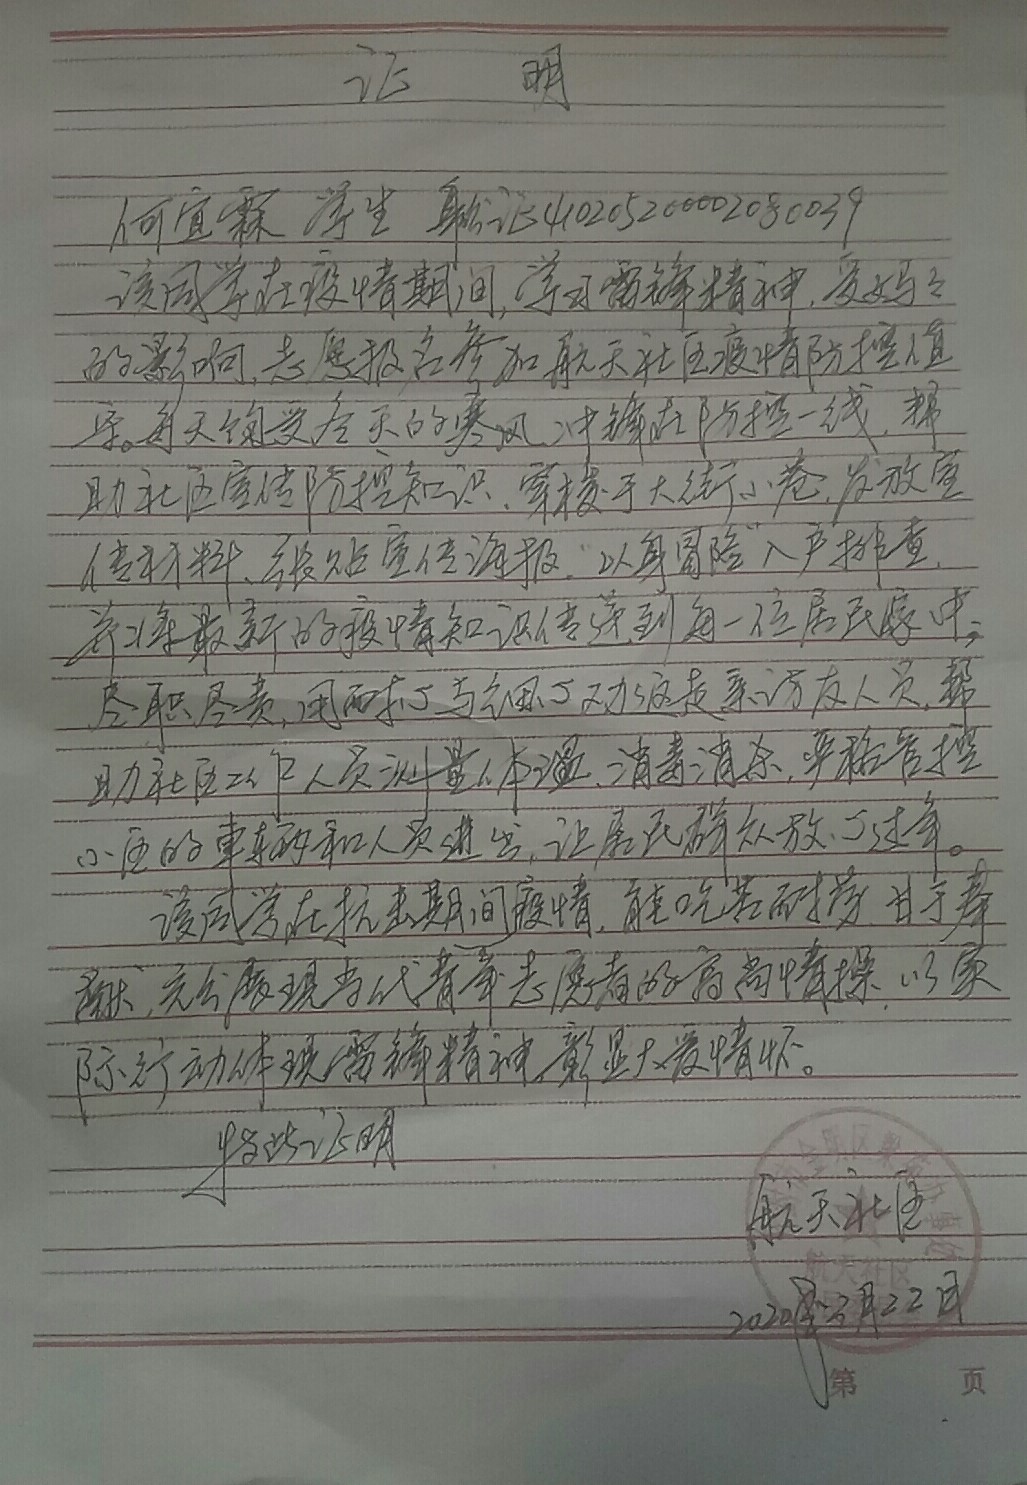 证 明
何宜霖 学生 身份证410205200002080039
该同学在疫情期间,学习雷锋精神,受妈妈
的影响,志愿报名参加航天社区疫情防控值
守。每天饱受冬天的寒风,冲锋在防控一线,帮
助社区宣传防控知识、穿梭于大街小巷,发放宣
传材料、张贴宣传海报,“以身冒险”入户排查,
并将最新的疫情知识传递到每一位居民家中,
尽职尽责,用耐心与细心劝返走亲访友人员,帮
助社区工作人员测量体温、消毒消杀,严格管控
小区的車辆和人员进出,让居民群众放心过年。
该同学在抗击期间疫情,能吃苦耐劳,甘于奉
献,充分展现当代青年志愿者的高尚情操,以实
际行动体现雷锋精神,彰显大爱情怀。
特此证明
航天社区
航天社区
2020年3月22日
第 页